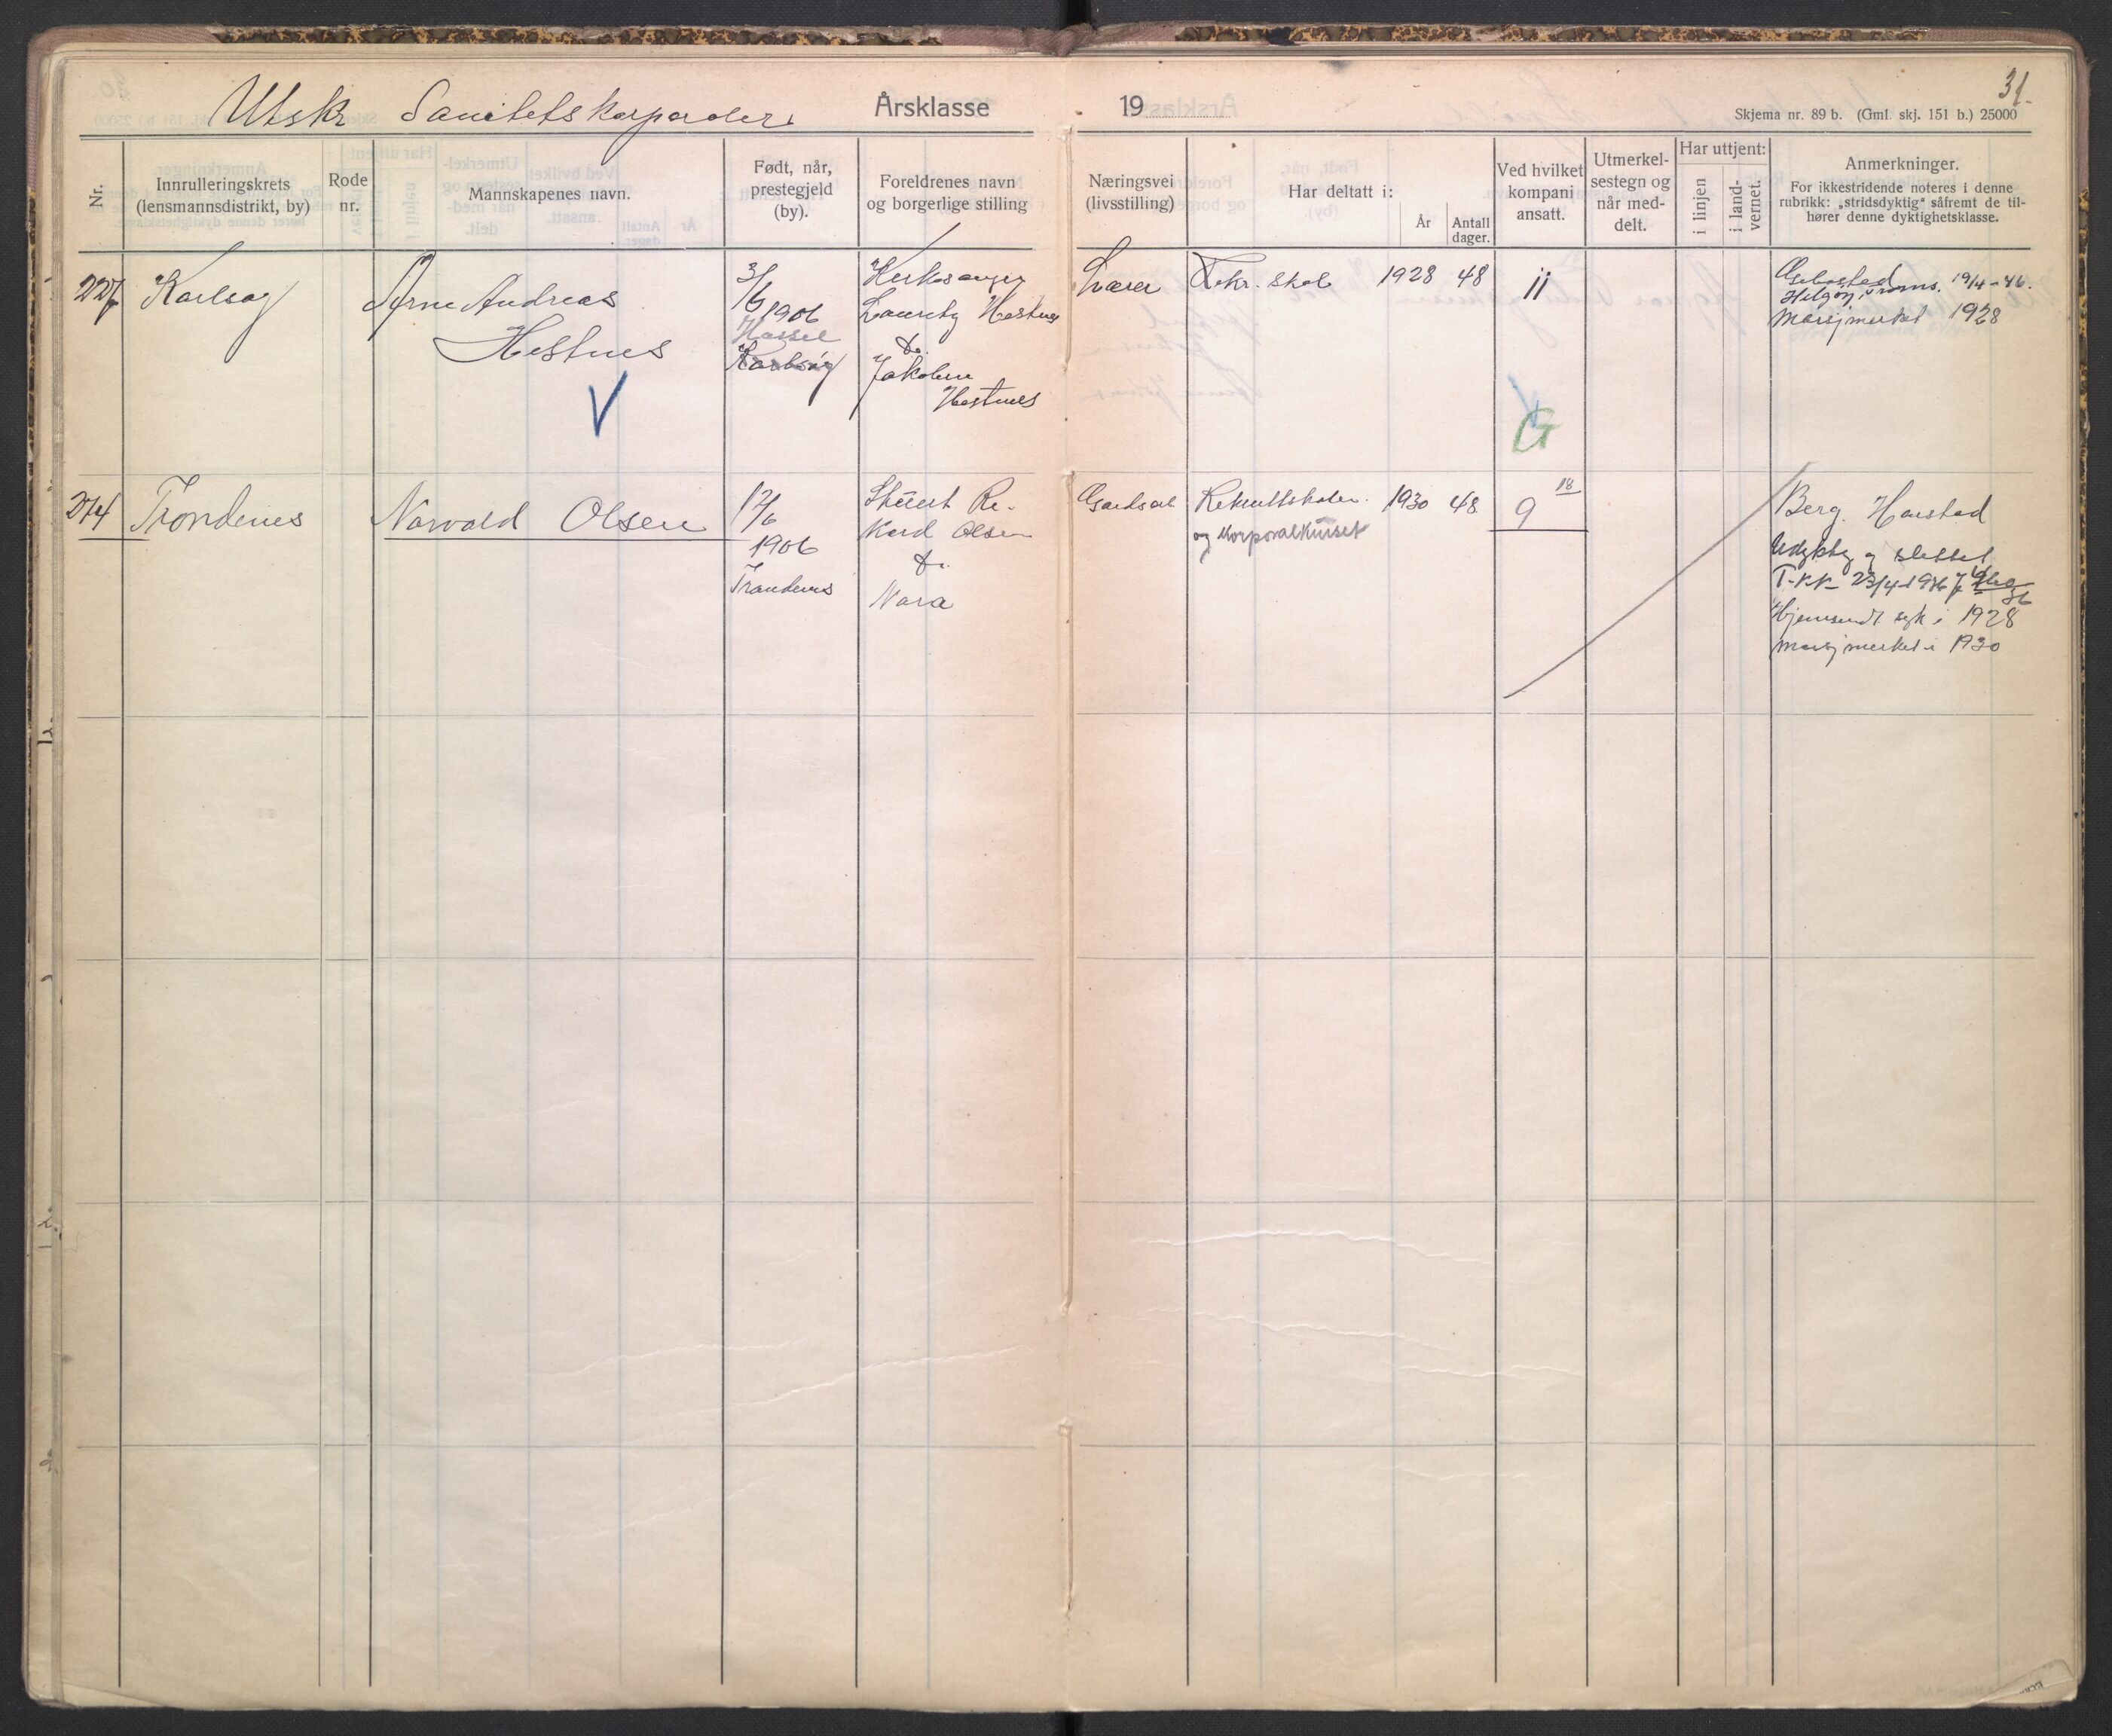 Utskr Sanitetskorporaler
Årsklasse 19
31.
Skjema nr. 89 b. (Gml. skj. 151 b.) 25000
Nr.
Innrulleringskrets
(lensmannsdistrikt, by)
Rode
nr.
Mannskapenes navn.
Født, når,
prestegjeld
(by).
Foreldrenes navn
og borgerlige stilling
Næringsvei
(livsstilling)
Har deltatt i:
År
Antall
dager.
Ved hvilket
kompani
ansatt.
Utmerkel-
sestegn og
når med-
delt.
Har uttjent:
i linjen
i land-
vernet.
Anmerkninger.
For ikkestridende noteres i denne
rubrikk: „stridsdyktig" såfremt de til-
hører denne dyktighetsklasse.
227
Karlsøy
Arne Andreas
Hestnes
V
3/6 1906
Hassel
Karlsøy
Kirkesanger
Lauritz Hestnes
&
Jakobine
Hestnes
Lærer
Rekr. skole 1928 48
11
G
Gibostad 19/4-46.
Helgøy, Troms.
Marsjmerket 1928
274
Trondenes
Norvald Olsen
17/6
1906
Trondenes
Rikard Olsen
&
Nora
Gardsarb
Rekruttskolen 1930 48
og korporalkurset
9
18
Berg. Harstad
Udyktig og slettet
T.K.K. 23/4-1936
Hjemsendt syk i 1928
marsjmerket i 1930